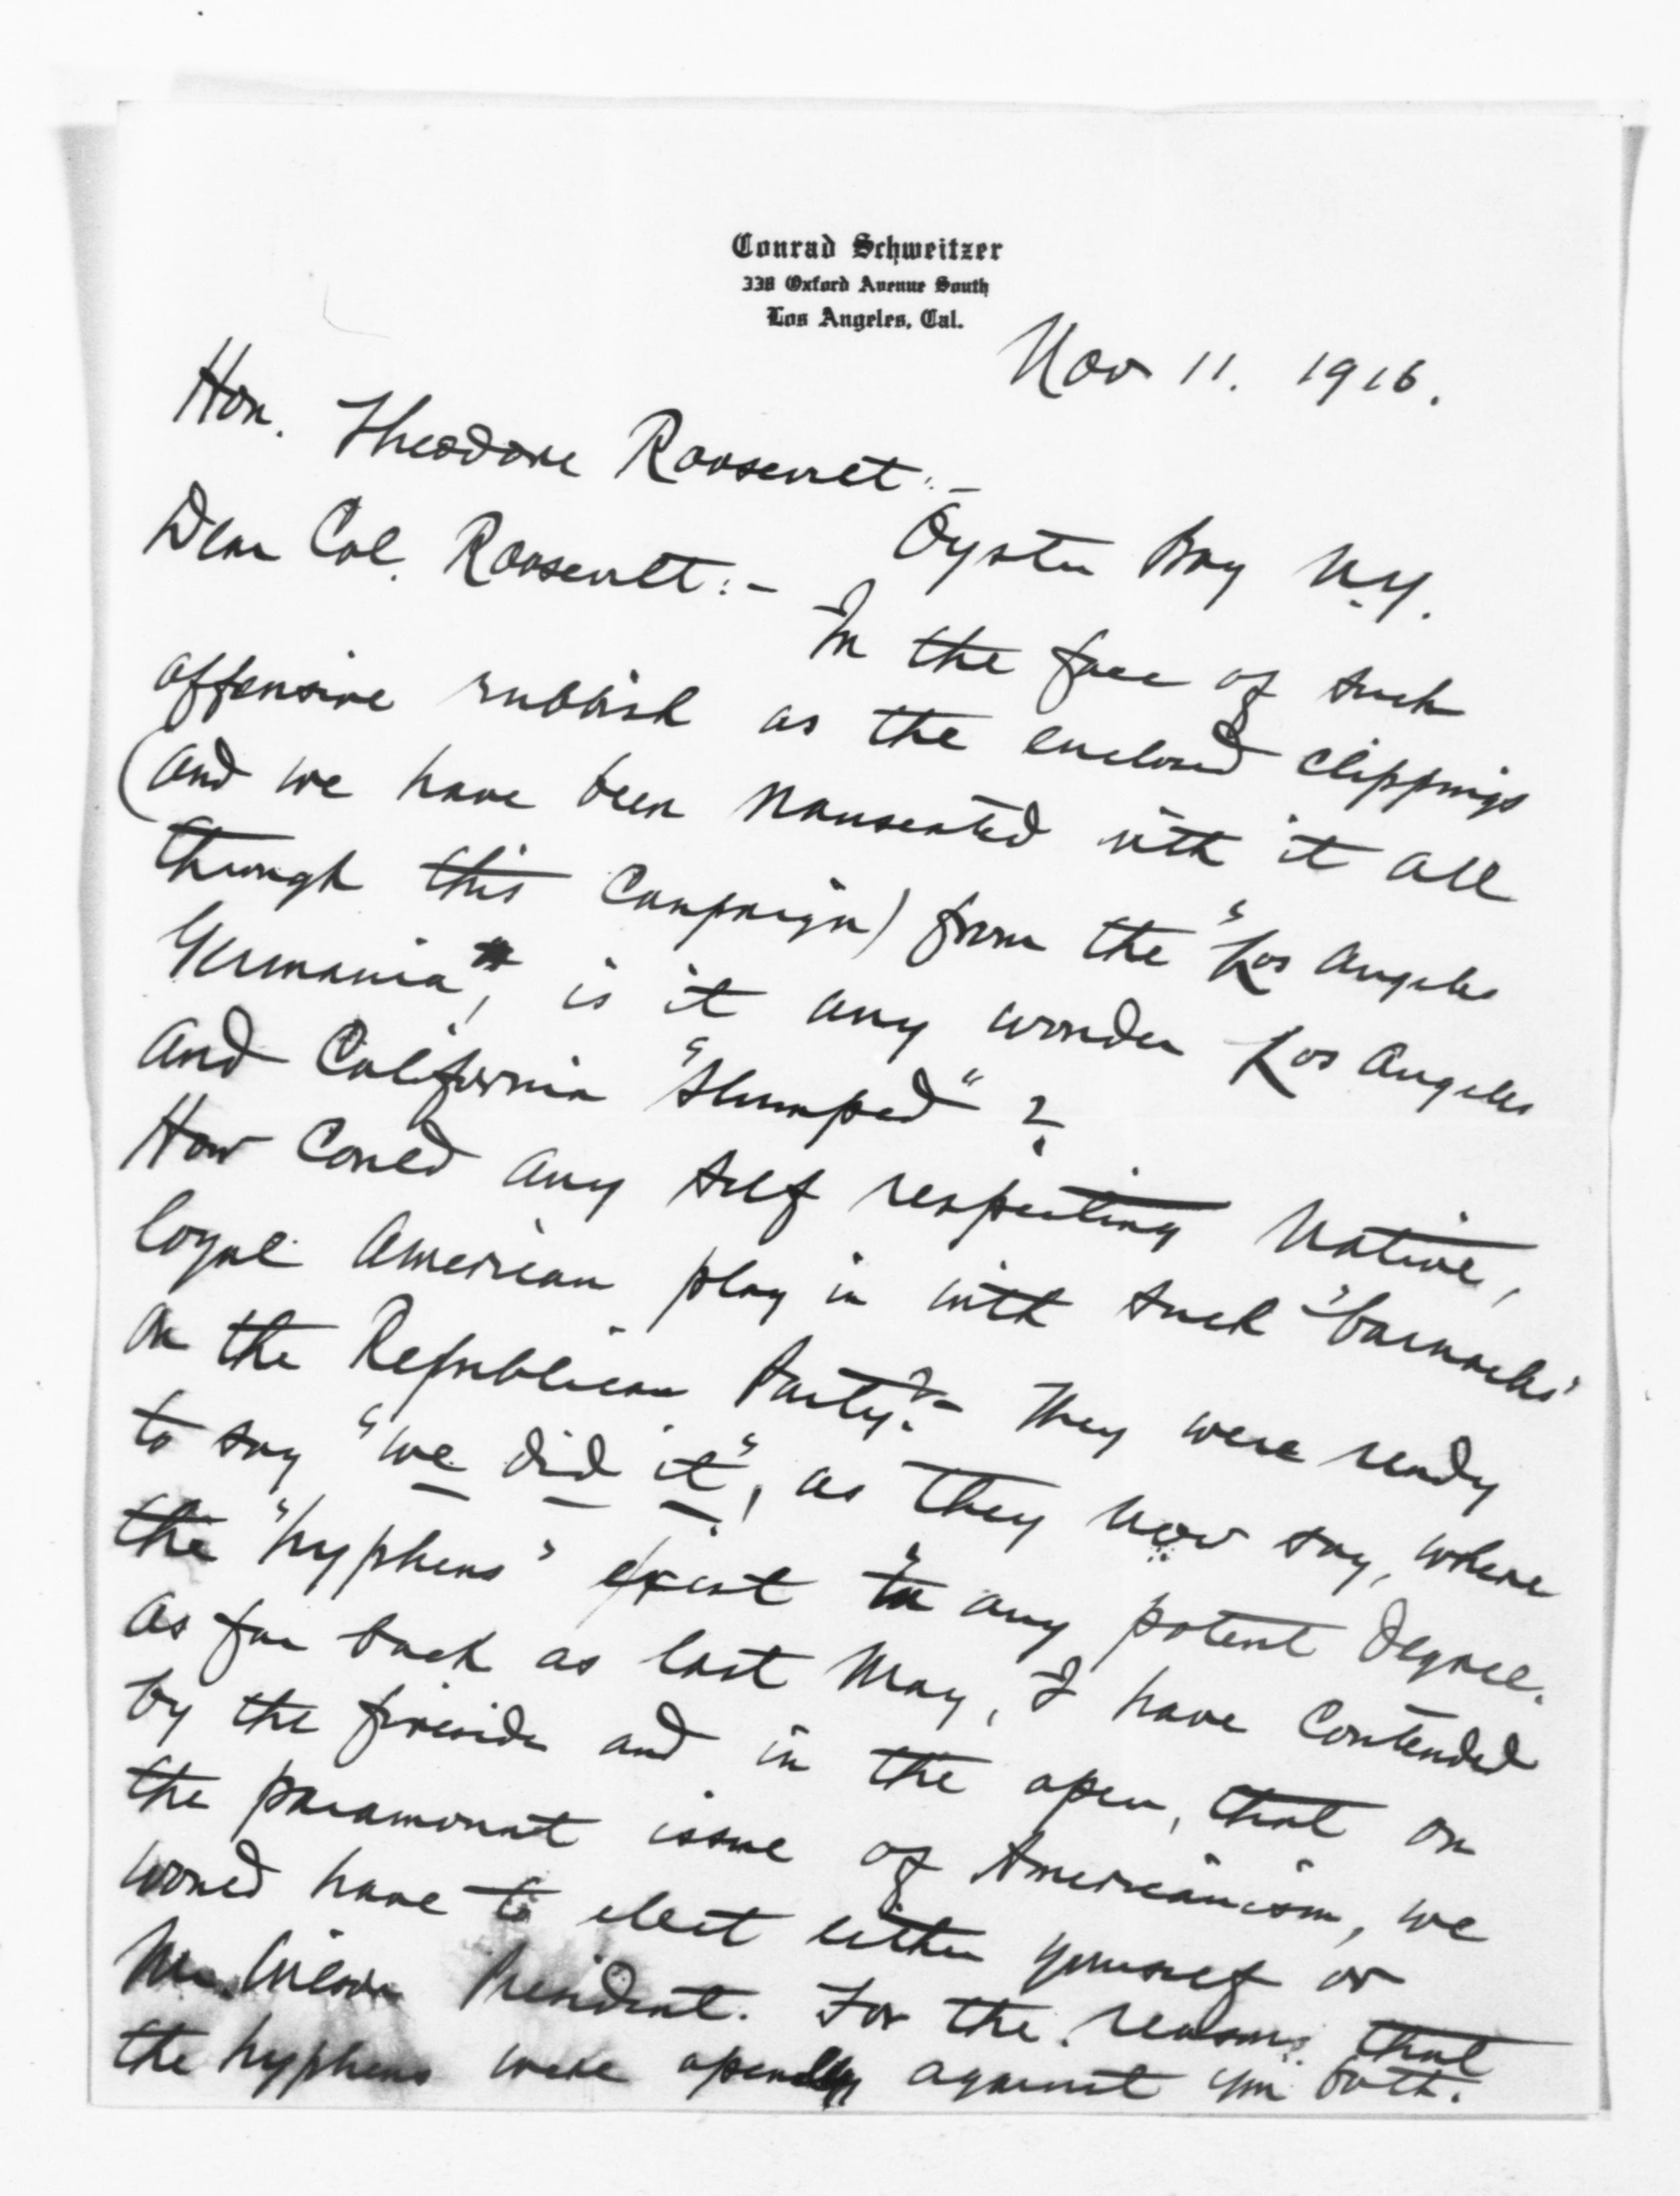 Conrad Schweitzer
338 Oxford Avenue South
Los Angeles, Cal.
Nov 11. 1916.
Hon. Theodore Roosevelt:-
Oyster Bay N.Y.
Dear Col. Roosevelt:-
In the face of such
offensive rubbish as the enclosed clippings
(and we have been nauseated with it all
through this Campaign) from the "Los Angeles
Germania", is it any wonder Los Angeles
and California "slumped"?
How could any self respecting native,
loyal American play in with such "barnacles"
on the Republican Party?- They were ready
to say "we did it", as they now say, where
the "hyphens" exist in any potent degree.
As far back as last May, I have contended
by the fireside and in the open, that on
the paramount issue of Americanism, we
would have to elect either yourself or
Mr. Wilson President. For the reasons that
the hyphens were openly against you both.